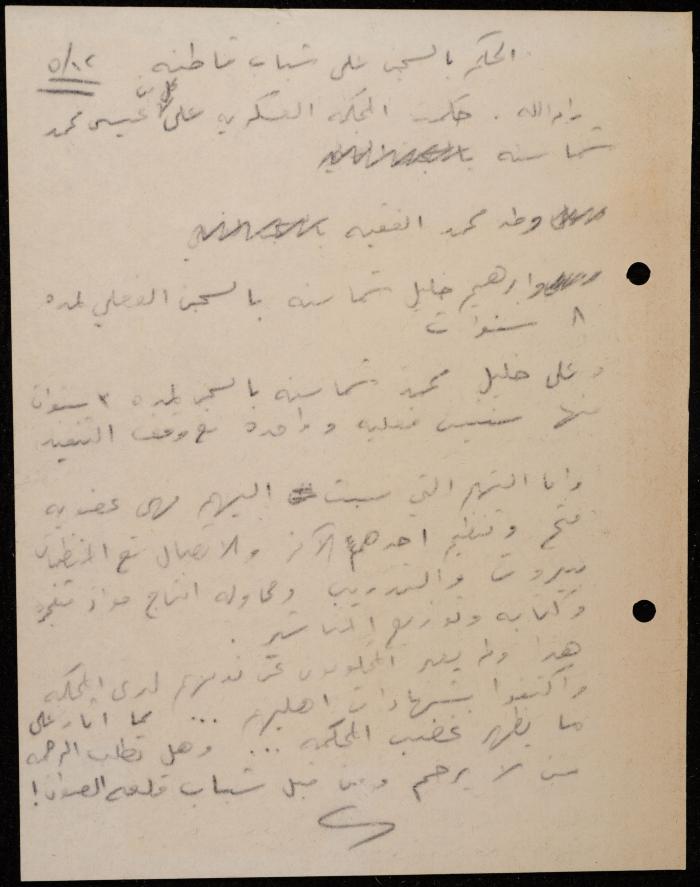 الحكم بالسجن على شباب قاطنه ٥/١٢
رام الله . حكمت المحكمة العسكرية على كل من عيسى محمد
شماسنه
وطه محمد الفقيه
وابراهيم خليل شماسنه بالسجن الفعلي لمده
٨ سنوات
وعلى خليل محمد شماسنه بالسجن لمده ٣ سنوات
منها سنتين فعليه وواحده مع وقف التنفيذ
واما التهم التي نسبت اليهم فهي عضويه
فتح وتنظيم احدهم الآخر والاتصال مع المنظمات
بيروت والتدريب ومحاوله انتاج مواد متفجره
وكتابه وتوزيع المناشير .
هذا ولم يعبر المحاكمون عن ندمهم لدى المحكمه
واكتفوا بشهادات اهليهم ... مما اثار على
ما يظهر غضب المحكمه ... وهل تطلب الرحمه
من لا يرحم ومن قبل شباب قلعه الصوان !